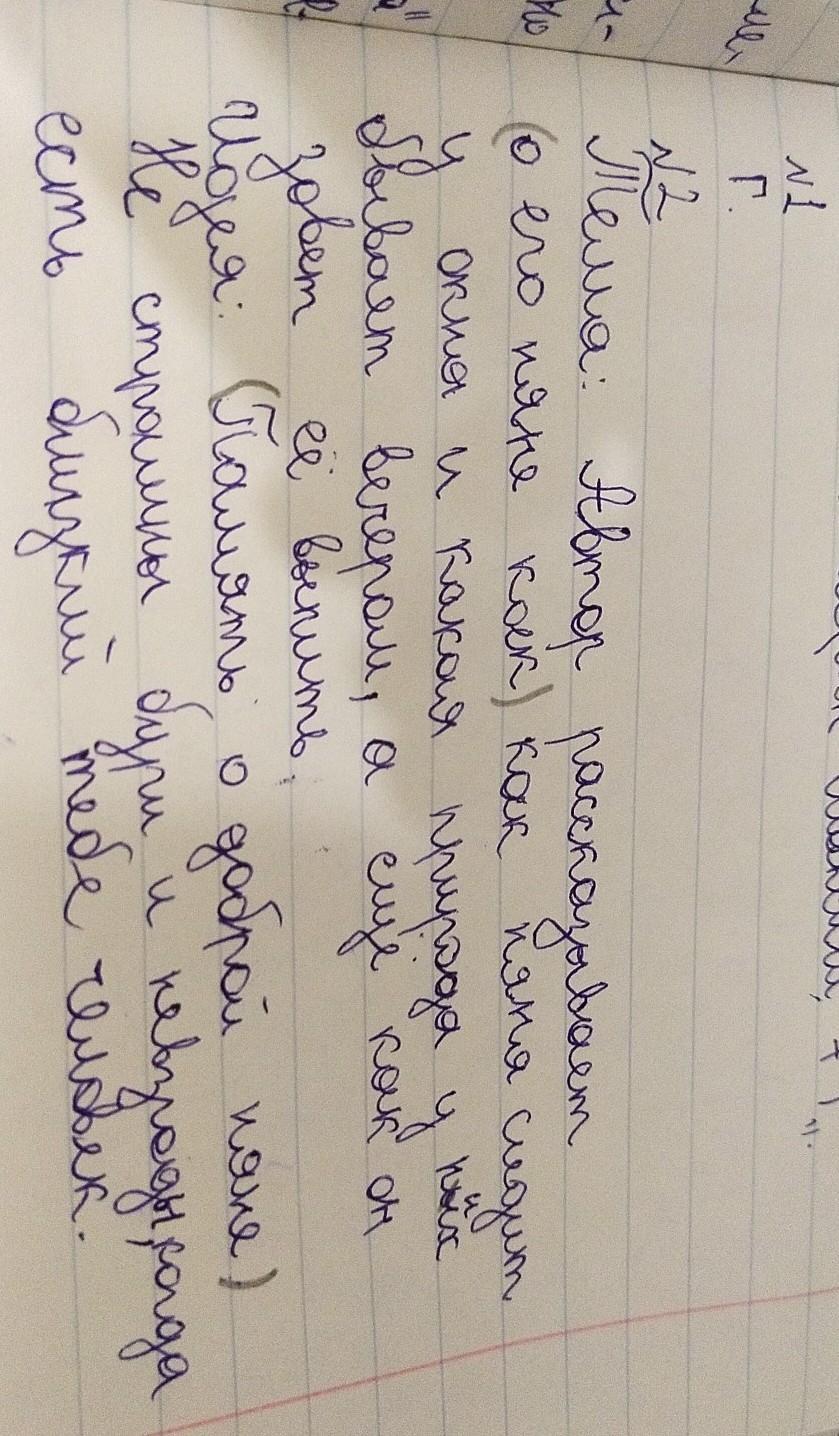 №1
Г.
№2
Тема: Автор рассказывает
(о его няне как) как няня сидит
у окна и какая природа у них
бывает вечером, а ещё как он
зовет её выпить.
Идея: (Память о доброй няне)
Не страшны бури и невзгоды, когда
есть близкий тебе человек.